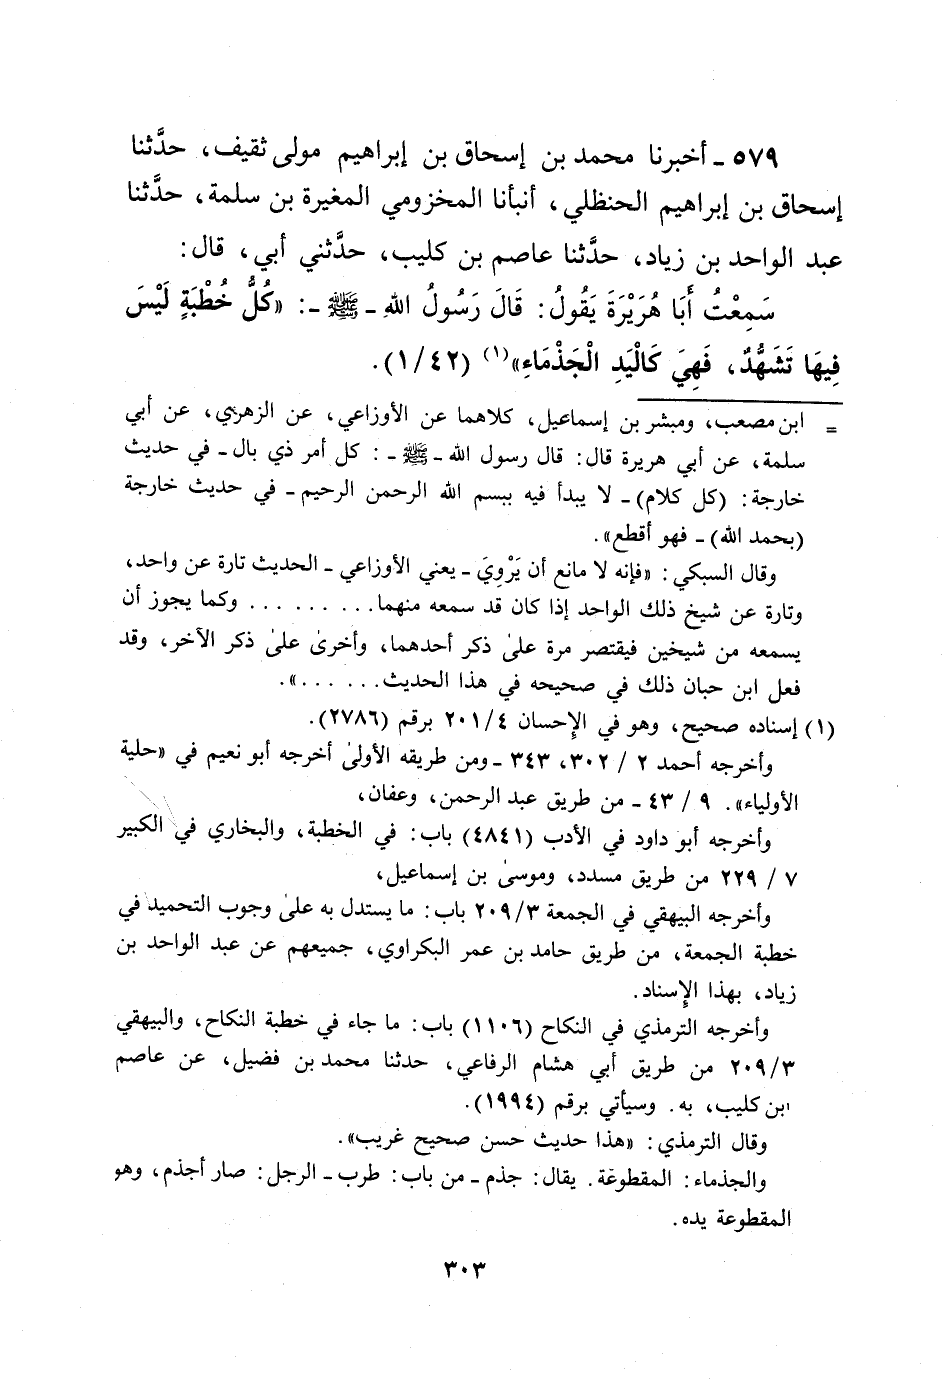 ٥٧٩ - أخبرنا محمد بن إسحاق بن إبراهيم مولى ثقيف، حدَّثنا
إسحاق بن إبراهيم الحنظلي، أنبأنا المخزومي المغيرة بن سلمة، حدَّثنا
عبد الواحد بن زياد، حدَّثنا عاصم بن كليب، حدَّثني أبي، قال:
سَمِعْتُ أَبَا هُرَيْرَةَ يَقُولُ: قَالَ رَسُولُ اللهِ - ﷺ -: «كُلُّ خُطْبَةٍ لَيْسَ
فِيهَا تَشَهُّدٌ، فَهِيَ كَالْيَدِ الْجَذْمَاءِ»(١) (١/٤٢).
= ابن مصعب، ومبشر بن إسماعيل، كلاهما عن الأوزاعي، عن الزهري، عن أبي
سلمة، عن أبي هريرة قال: قال رسول الله - ﷺ - : كل أمر ذي بال - في حديث
خارجة: (كل كلام) - لا يبدأ فيه ببسم الله الرحمن الرحيم - في حديث خارجة
(بحمد الله) - فهو أقطع».
وقال السبكي: «فإنه لا مانع أن يَرْوِيَ - يعني الأوزاعي - الحديث تارة عن واحد،
وتارة عن شيخ ذلك الواحد إذا كان قد سمعه منهما. . . . . . . . . وكما يجوز أن
يسمعه من شيخين فيقتصر مرة علىٰ ذكر أحدهما، وأخرىٰ علىٰ ذكر الآخر، وقد
فعل ابن حبان ذلك في صحيحه في هذا الحديث. . . . . .».
(١) إسناده صحيح، وهو في الإحسان ٢٠١/٤ برقم (٢٧٨٦).
وأخرجه أحمد ٢ / ٣٠٢، ٣٤٣ - ومن طريقه الأولىٰ أخرجه أبو نعيم في «حلية
الأولياء». ٩ / ٤٣ - من طريق عبد الرحمن، وعفان،
وأخرجه أبو داود في الأدب (٤٨٤١) باب: في الخطبة، والبخاري في الكبير
٧ / ٢٢٩ من طريق مسدد، وموسىٰ بن إسماعيل،
وأخرجه البيهقي في الجمعة ٢٠٩/٣ باب: ما يستدل به علىٰ وجوب التحميد في
خطبة الجمعة، من طريق حامد بن عمر البكراوي، جميعهم عن عبد الواحد بن
زياد، بهذا الإسناد.
وأخرجه الترمذي في النكاح (١١٠٦) باب: ما جاء في خطبة النكاح، والبيهقي
٢٠٩/٣ من طريق أبي هشام الرفاعي، حدثنا محمد بن فضيل، عن عاصم
ابن كليب، به. وسيأتي برقم (١٩٩٤).
وقال الترمذي: «هذا حديث حسن صحيح غريب».
والجذماء: المقطوعة. يقال: جذم - من باب: طرب - الرجل: صار أجذم، وهو
المقطوعة يده.
٣٠٣